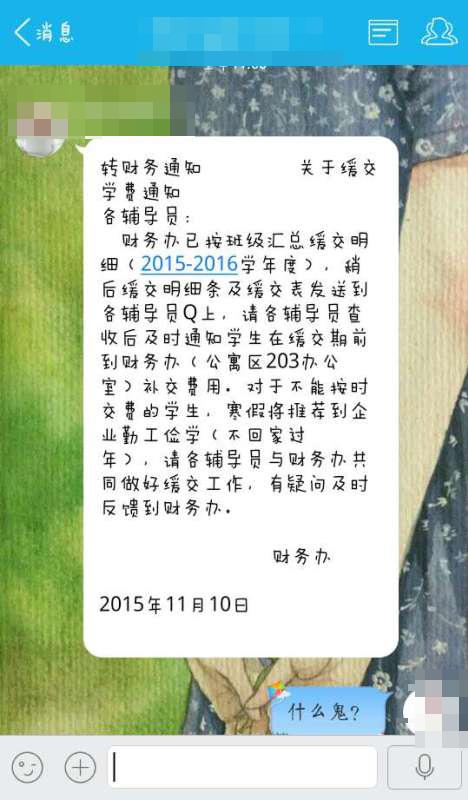 消息
转财务通知 关于缓交
学费通知
各辅导员:
财务办已按班级汇总缓交明
细(2015-2016学年度),稍
后缓交明细条及缓交表发送到
各辅导员Q上,请各辅导员查
收后及时通知学生在缓交期前
到财务办(公寓区203办公
室)补交费用。对于不能按时
交费的学生,寒假将推荐到企
业勤工俭学(不回家过
年),请各辅导员与财务办共
同做好缓交工作,有疑问及时
反馈到财务办。
财务办
2015年11月10日
什么鬼?